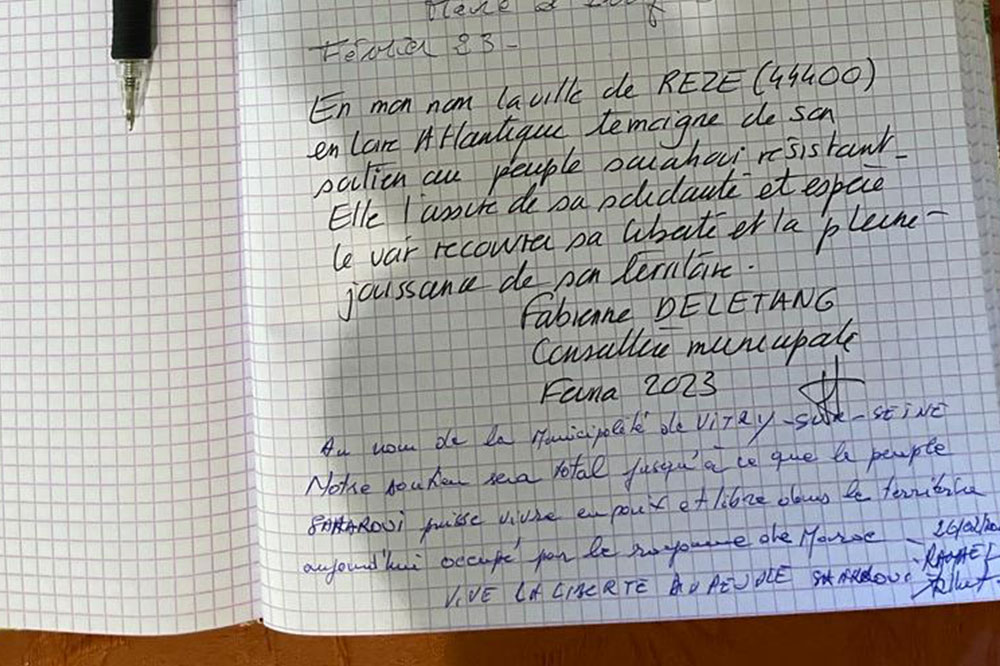 Février 23 -
En mon nom la ville de REZE (44400)
en Loire Atlantique temoigne de son
soutien au peuple sarahoui resistant -
Elle l'assure de sa solidarité et espère
le voir recouvrer sa liberté et la pleine -
jouissance de son territoire.
Fabienne DELETANG
Conseillère municipale
2023
Au nom de la Municipalité de VITRY-SUR-SEINE
Notre soutien sera total jusqu'à ce que le peuple
SAHAROUI puisse vivre en paix et libre dans le territoire
aujourd'hui occupé par le royaume de Maroc - 26/02/20
VIVE LA LIBERTE AU PEUPLE SAHAROUI